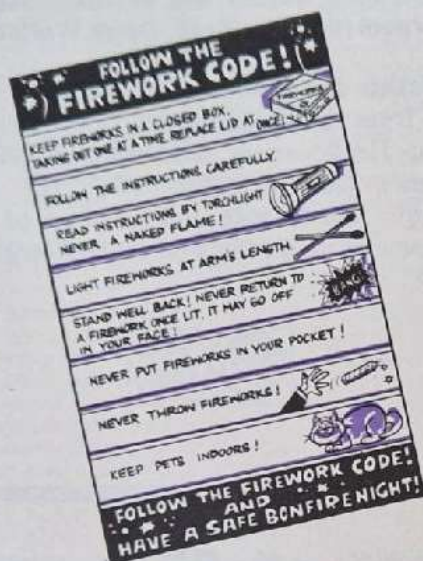 FOLLOW THE
FIREWORK CODE!
KEEP FIREWORKS IN A CLOSED BOX,
TAKING OUT ONE AT A TIME. REPLACE LID AT ONCE!
FIREWORKS
FOLLOW THE INSTRUCTIONS CAREFULLY.
READ INSTRUCTIONS BY TORCHLIGHT
NEVER A NAKED FLAME!
LIGHT FIREWORKS AT ARM'S LENGTH
STAND WELL BACK! NEVER RETURN TO
A FIREWORK ONCE LIT, IT MAY GO OFF
IN YOUR FACE!
BANG
NEVER PUT FIREWORKS IN YOUR POCKET!
NEVER THROW FIREWORKS!
KEEP PETS INDOORS!
FOLLOW THE FIREWORK CODE!
AND
HAVE A SAFE BONFIRE NIGHT!